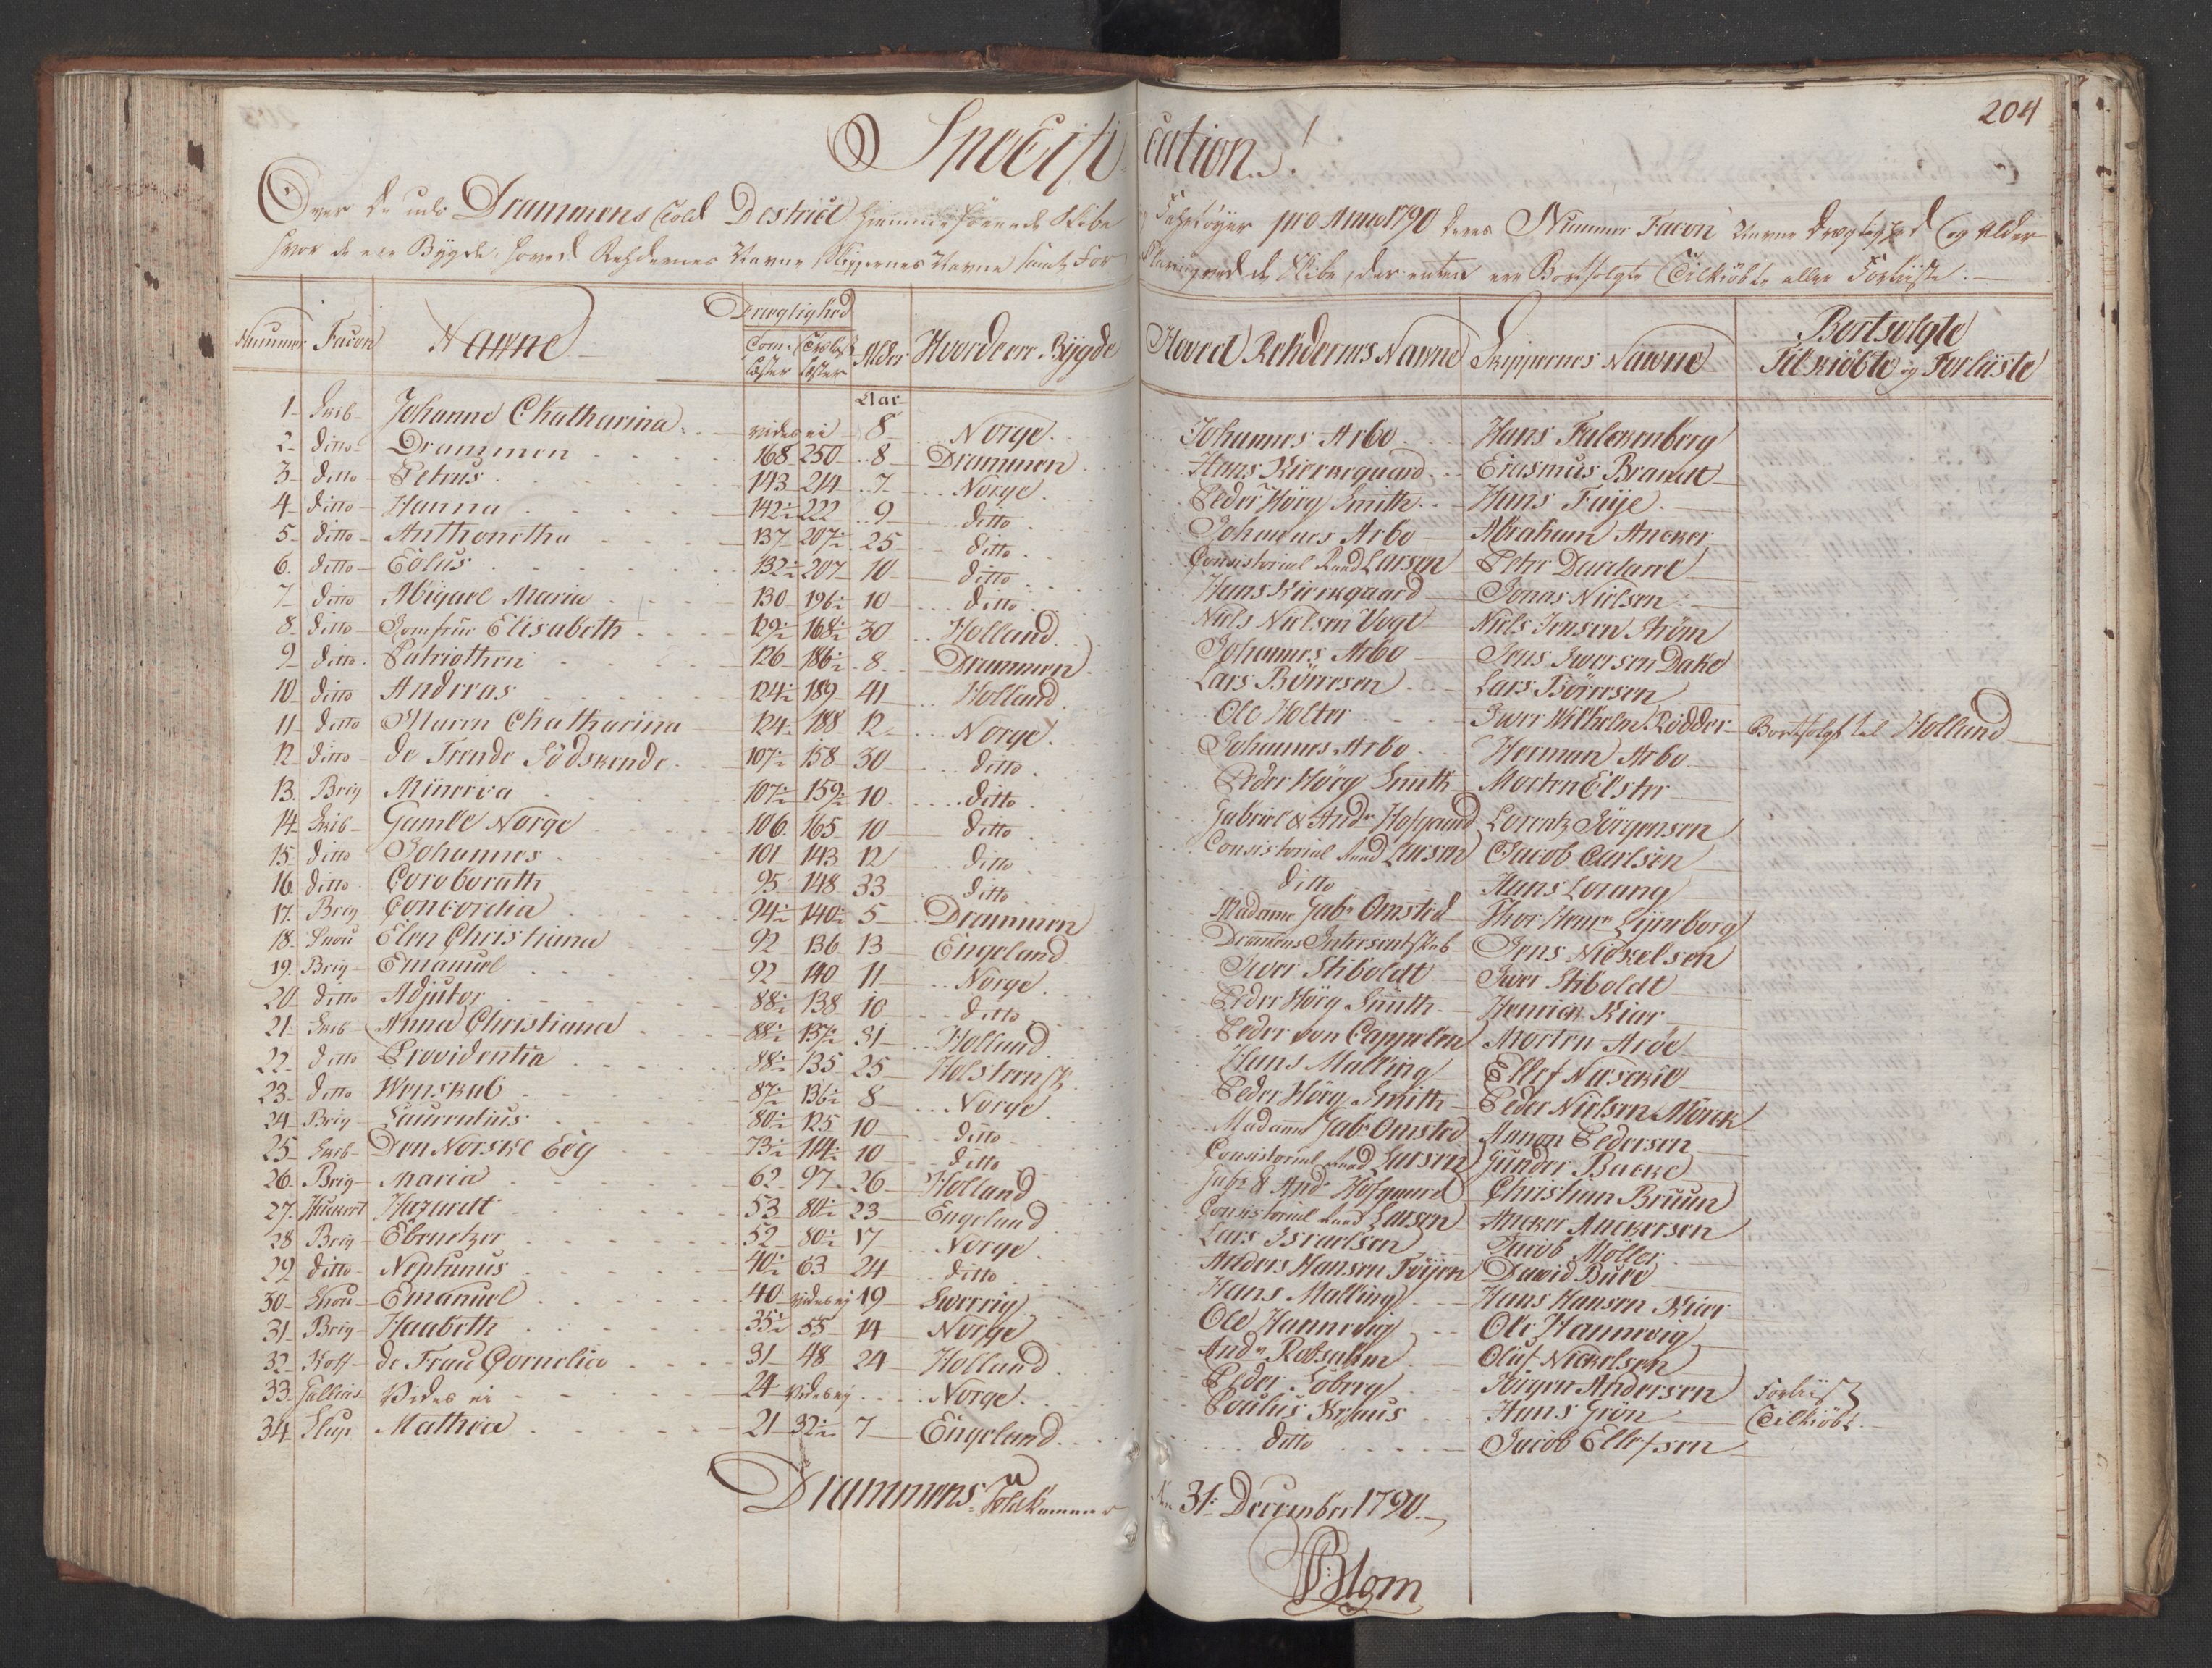 204
Specification.
Over de udi Drammens Told District hiemmehörende Skibe og Fahrtöyer pro Anno 1790 deres Nummer Facon Navne Drægtighed og Alder
hvor de ere Bygde, hoved Rehdernes Navne, Skippernes Navne samt Forklaring ved de Skibe, der enten ere Bortsolgte Tilkiöbte eller Forliiste.
Nummer Facon Navne Drægtighed Com: Læster Læster Alder Hvor de ere Bÿgde Hoved Rehdernes Navne Skippernes Nawne Bortsolgte Tilkiöbte og Forliiste
Aar
1 Skib Johanne Chatharina vides ei 8 Norge Johannes Arbo Hans Falckenberg
2 ditto Drammen 168 250 8 Drammen Hans Kierkegaard Erasmus Brandt
3 ditto Petrus 143 214 7 Norge Peder Hörg Smith Hans Faÿe
4 ditto Hanna 142½ 222 9 ditto Johannes Arbo Abraham Ancker
5 ditto Anthonetha 137 207½ 25 ditto Consistorial Raad Larsen Peter
6 ditto Eolus 132½ 207 10 ditto Hans Kierkegaard Jonas Nielsen
7 ditto Abigael Maria 130 196½ 10 ditto Niels Nielsen Vogt Niels Jensen Ström
8 ditto Jomfrue Elisabeth 129½ 168½ 30 Holland Johannes Arbo Jens Iwersen Dake
9 ditto Patriothen 126 186½ 8 Drammen Lars Börresen Lars Börresen
10 ditto Andreas 124½ 189 41 Holland Ole Holter Iwer Wilhelm Rödder Bortsolgt til Holland
11 ditto Maren Chatharina 124 188 12 Norge Johannes Arbo Herman Arbo
12 ditto de Trende Södskende 107½ 158 30 ditto Peder Hörg Smith Morten Elster
13 Brig Minerva 107½ 159½ 10 ditto Gabriel & Andr Hofgaard Lorentz Jörgensen
14 Skib Gamle Norge 106 165 10 ditto Consistorial Raad Larsen Jacob Carlsen
15 ditto Johannes 101 143 12 ditto ditto Hans Lorang
16 ditto Coroborath 95 148 33 ditto Madame Gabr Omsted Thor
17 Brig Concordia 94½ 140½ 5 Drammen Dramens Interesentskab Jens Nickelsen
18 Snau Elen Christiana 92 136 13 Engeland Iwer Stiboldt Iwer Stiboldt
19 Brig Emanuel 92 140 11 Norge Peder Hörg Smith Henrich Kier
20 ditto Adjutor 88½ 138 10 ditto Peder von Cappelen Morten Aröe
21 Skib Anna Christiana 88½ 137½ 31 Holland Hans Malling Ellef
22 ditto Providentia 88½ 135 25 Holsteensk Peder Hörg Smith Peder Nielsen Mörck
23 ditto Wenskab 87½ 136½ 8 Norge Madame Gabr Omsted Annon Pedersen
24 Brig Laurentius 80½ 125 10 ditto Consistorial Raad Larsen Gunder Backe
25 Skib Den Norske Eeg 73½ 114½ 10 ditto Gabr & Andr Hofgaard Christian Bruun
26 Brig Maria 62 97 26 Holland Consistorial Raad Larsen Ancker Anckersen
27 Huckert Hazardt 53 80½ 23 Engeland Lars Israelsen Jacob Möller
28 Brig Ebenetzer 52 80½ 17 Norge Anders Hansen Töÿen Dawid Bure
29 ditto Neptunus 40½ 63 24 ditto Hans Malling Hans Hansen Kier
30 Snau Emanuel 40 vides ej 19 Swerrig Ole Hannevig Ole Hannevig
31 Brig Haabeth 35½ 55 14 Norge Andr Robsahm Oluf Nickelsen
32 Koff de Frau Cornelica 31 48 24 Holland Peder Soberg Jörgen Andersen Forliist
33 Gallias Vides ei 24 vides ej Norge Poulus Kraus Hans Grön Tilkiöbt
34 Slup Mathea 21 32½ 7 Engeland ditto Jacob Ellefsen
Drammens Toldkammer den 31 December 1790
Blom